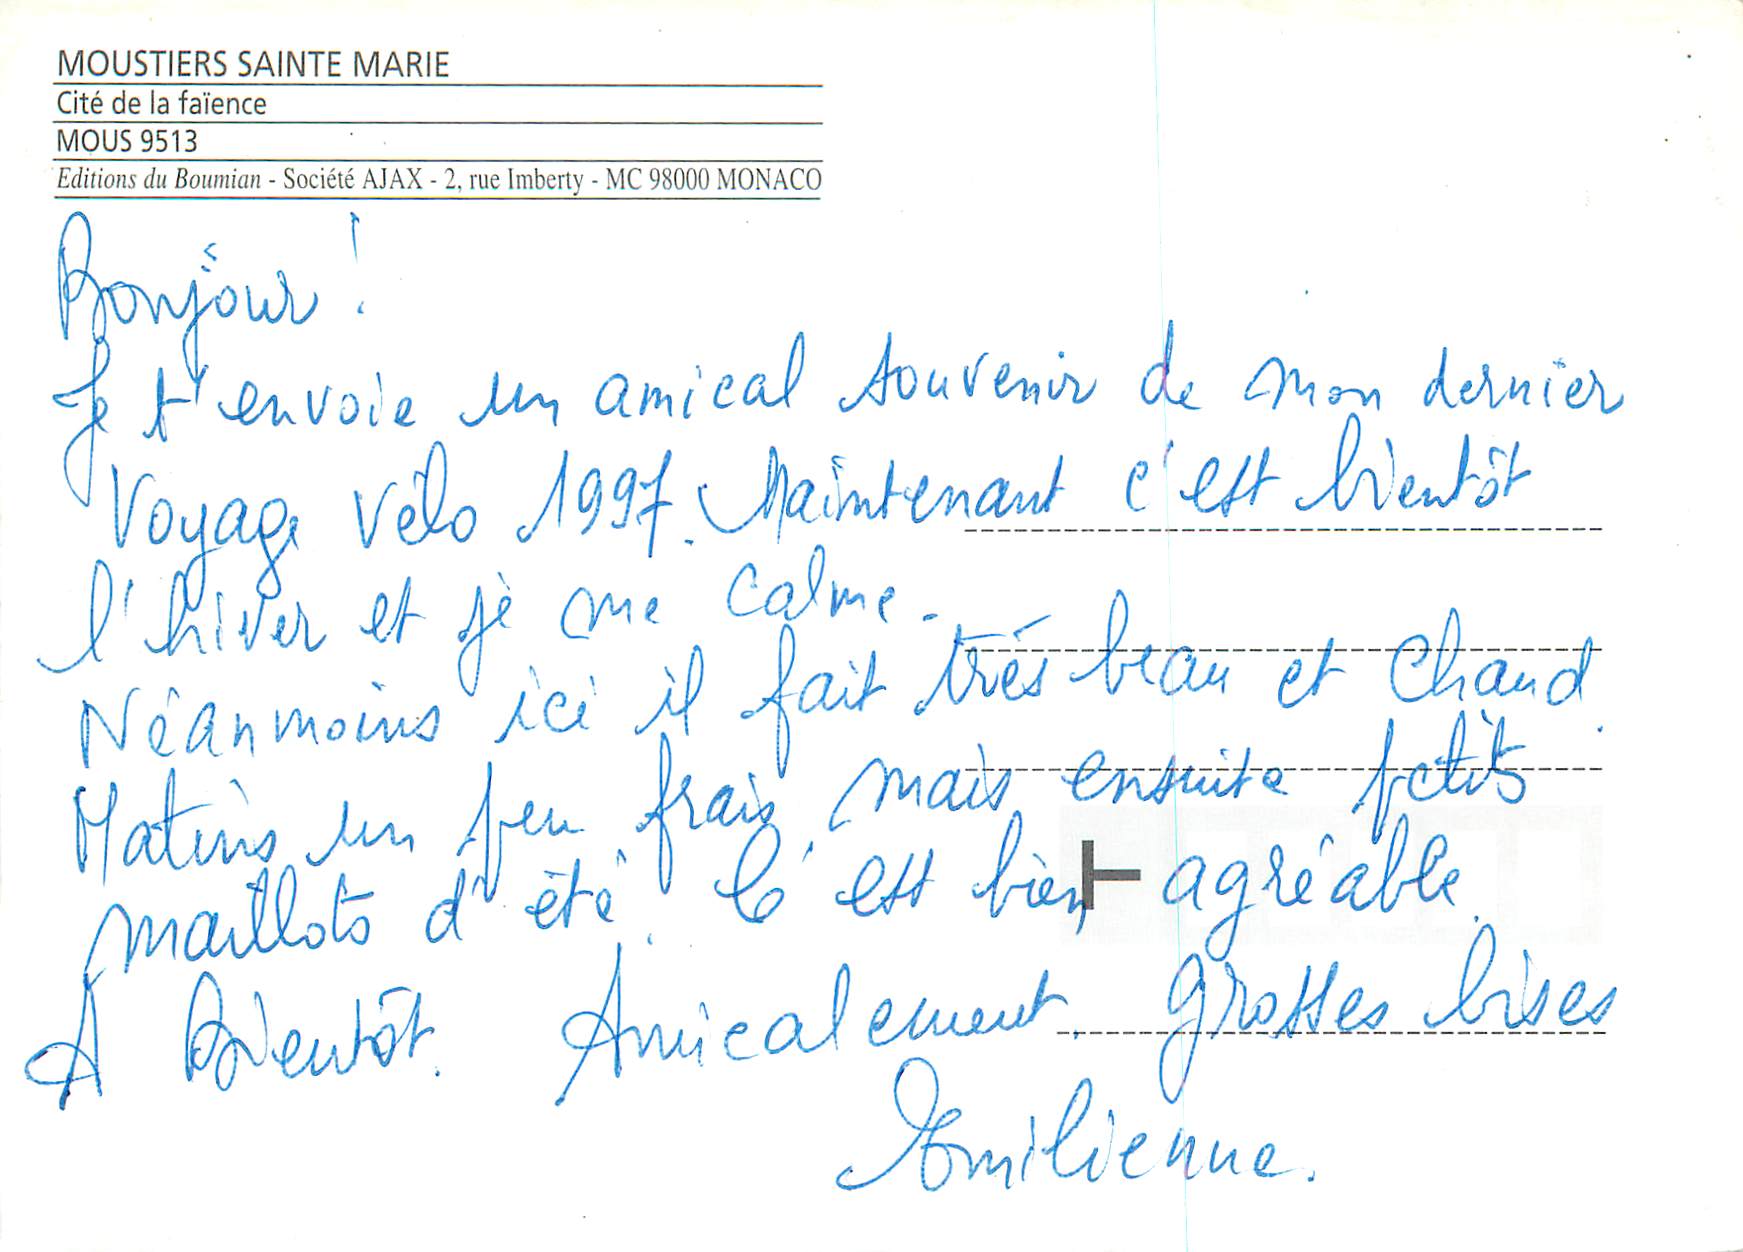 MOUSTIERS SAINTE MARIE
Cité de la faïence
MOUS 9513
Editions du Boumian - Société AJAX - 2, rue Imberty - MC 98000 MONACO
Bonjour !
Je t'envoie un amical souvenir de mon dernier
voyage vélo 1997. Maintenant c'est bientôt
l'hiver et je me calme.
Néanmoins ici il fait très beau et chaud.
Matins un peu frais, mais ensuite petits
maillots d'été. C'est bien agréable.
A Bientôt. Amicalement. Grosses bises
Emilienne.